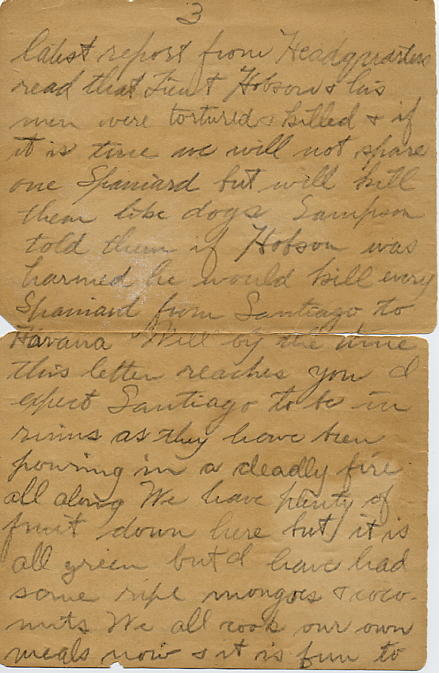 3
latest report from Headquarters
read that Lieut Hobson & his
men were tortured & killed & if
it is true we will not spare
one Spaniard but will kill
them like dogs Sampson
told them if Hobson was
harmed he would kill every
Spaniard from Santiago to
Havana Well by the time
this letter reaches you I
expect Santiago to be in
ruins as they have been
pouring in a deadly fire
all along We have plenty of
fruit down here but it is
all green but I have had
some ripe mangos & coco-
nuts We all cook our own
meals now & it is fun to